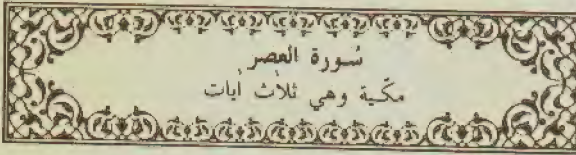 سُورة العصر
مكّية وهي ثلاث أيات